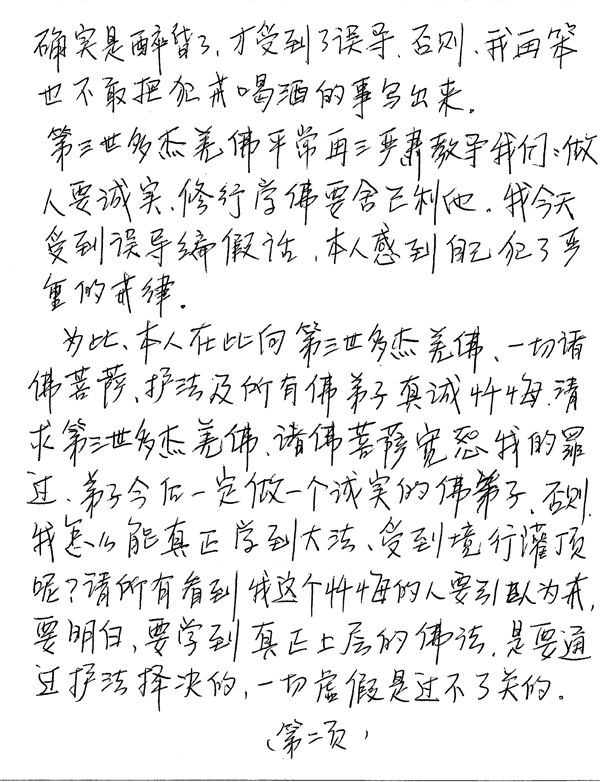 确实是醉昏了，才受到了误导，否则，我再笨
也不敢把犯戒喝酒的事写出来。
第三世多杰羌佛平常再三严肃教导我们：做
人要诚实，修行学佛要舍己利他。我今天
受到误导编假话，本人感到自己犯了严
重的戒律。
为此，本人在此向第三世多杰羌佛、一切诸
佛菩萨、护法及所有佛弟子真诚忏悔，请
求第三世多杰羌佛、诸佛菩萨宽恕我的罪
过，弟子今后一定做一个诚实的佛弟子，否则
我怎么能真正学到大法、受到境行灌顶
呢？请所有看到我这个忏悔的人要引以为戒，
要明白，要学到真正上层的佛法，是要通
过护法择决的，一切虚假是过不了关的。
（第二页）